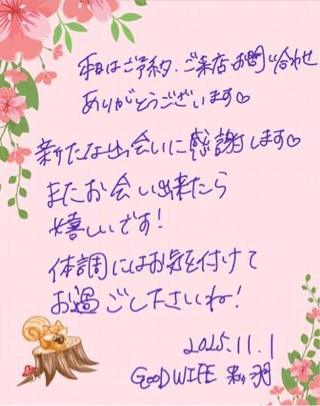 本日はご予約、ご来店お問い合わせ
ありがとうございます♡
新たな出会いに感謝します♡
またお会い出来たら
嬉しいです！
体調にはお気を付けて
お過ごし下さいね！
2025.11.1
GOOD WIFE